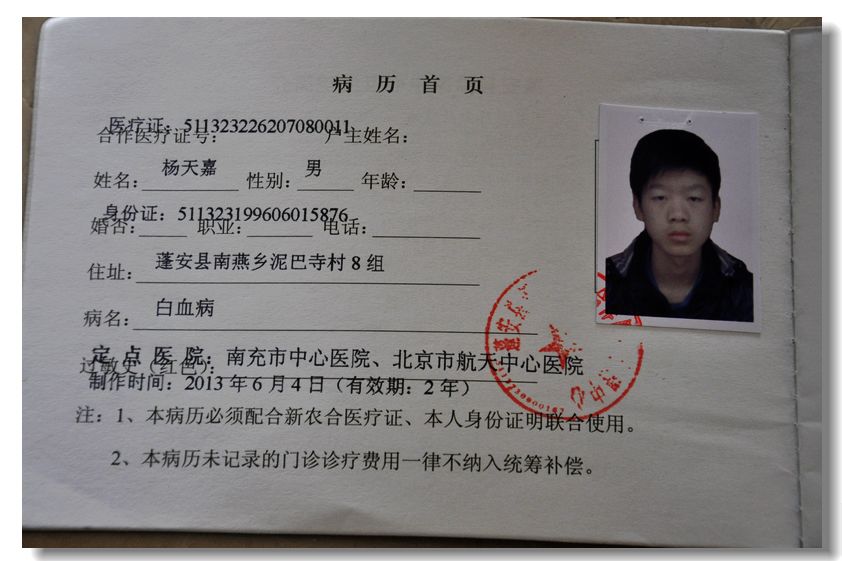 病 历 首 页
医疗证：511323226207080011
合作医疗证号： 户主姓名：
姓名： 杨天嘉 性别： 男 年龄：
身份证：511323199606015876
婚否： 职业： 电话：
住址： 蓬安县南燕乡泥巴寺村 8 组
病名： 白血病
定 点 医 院：南充市中心医院、北京市航天中心医院
过敏史（红色）：
制作时间：2013 年 6 月 4 日（有效期：2 年）
注：1、本病历必须配合新农合医疗证、本人身份证明联合使用。
2、本病历未记录的门诊诊疗费用一律不纳入统筹补偿。